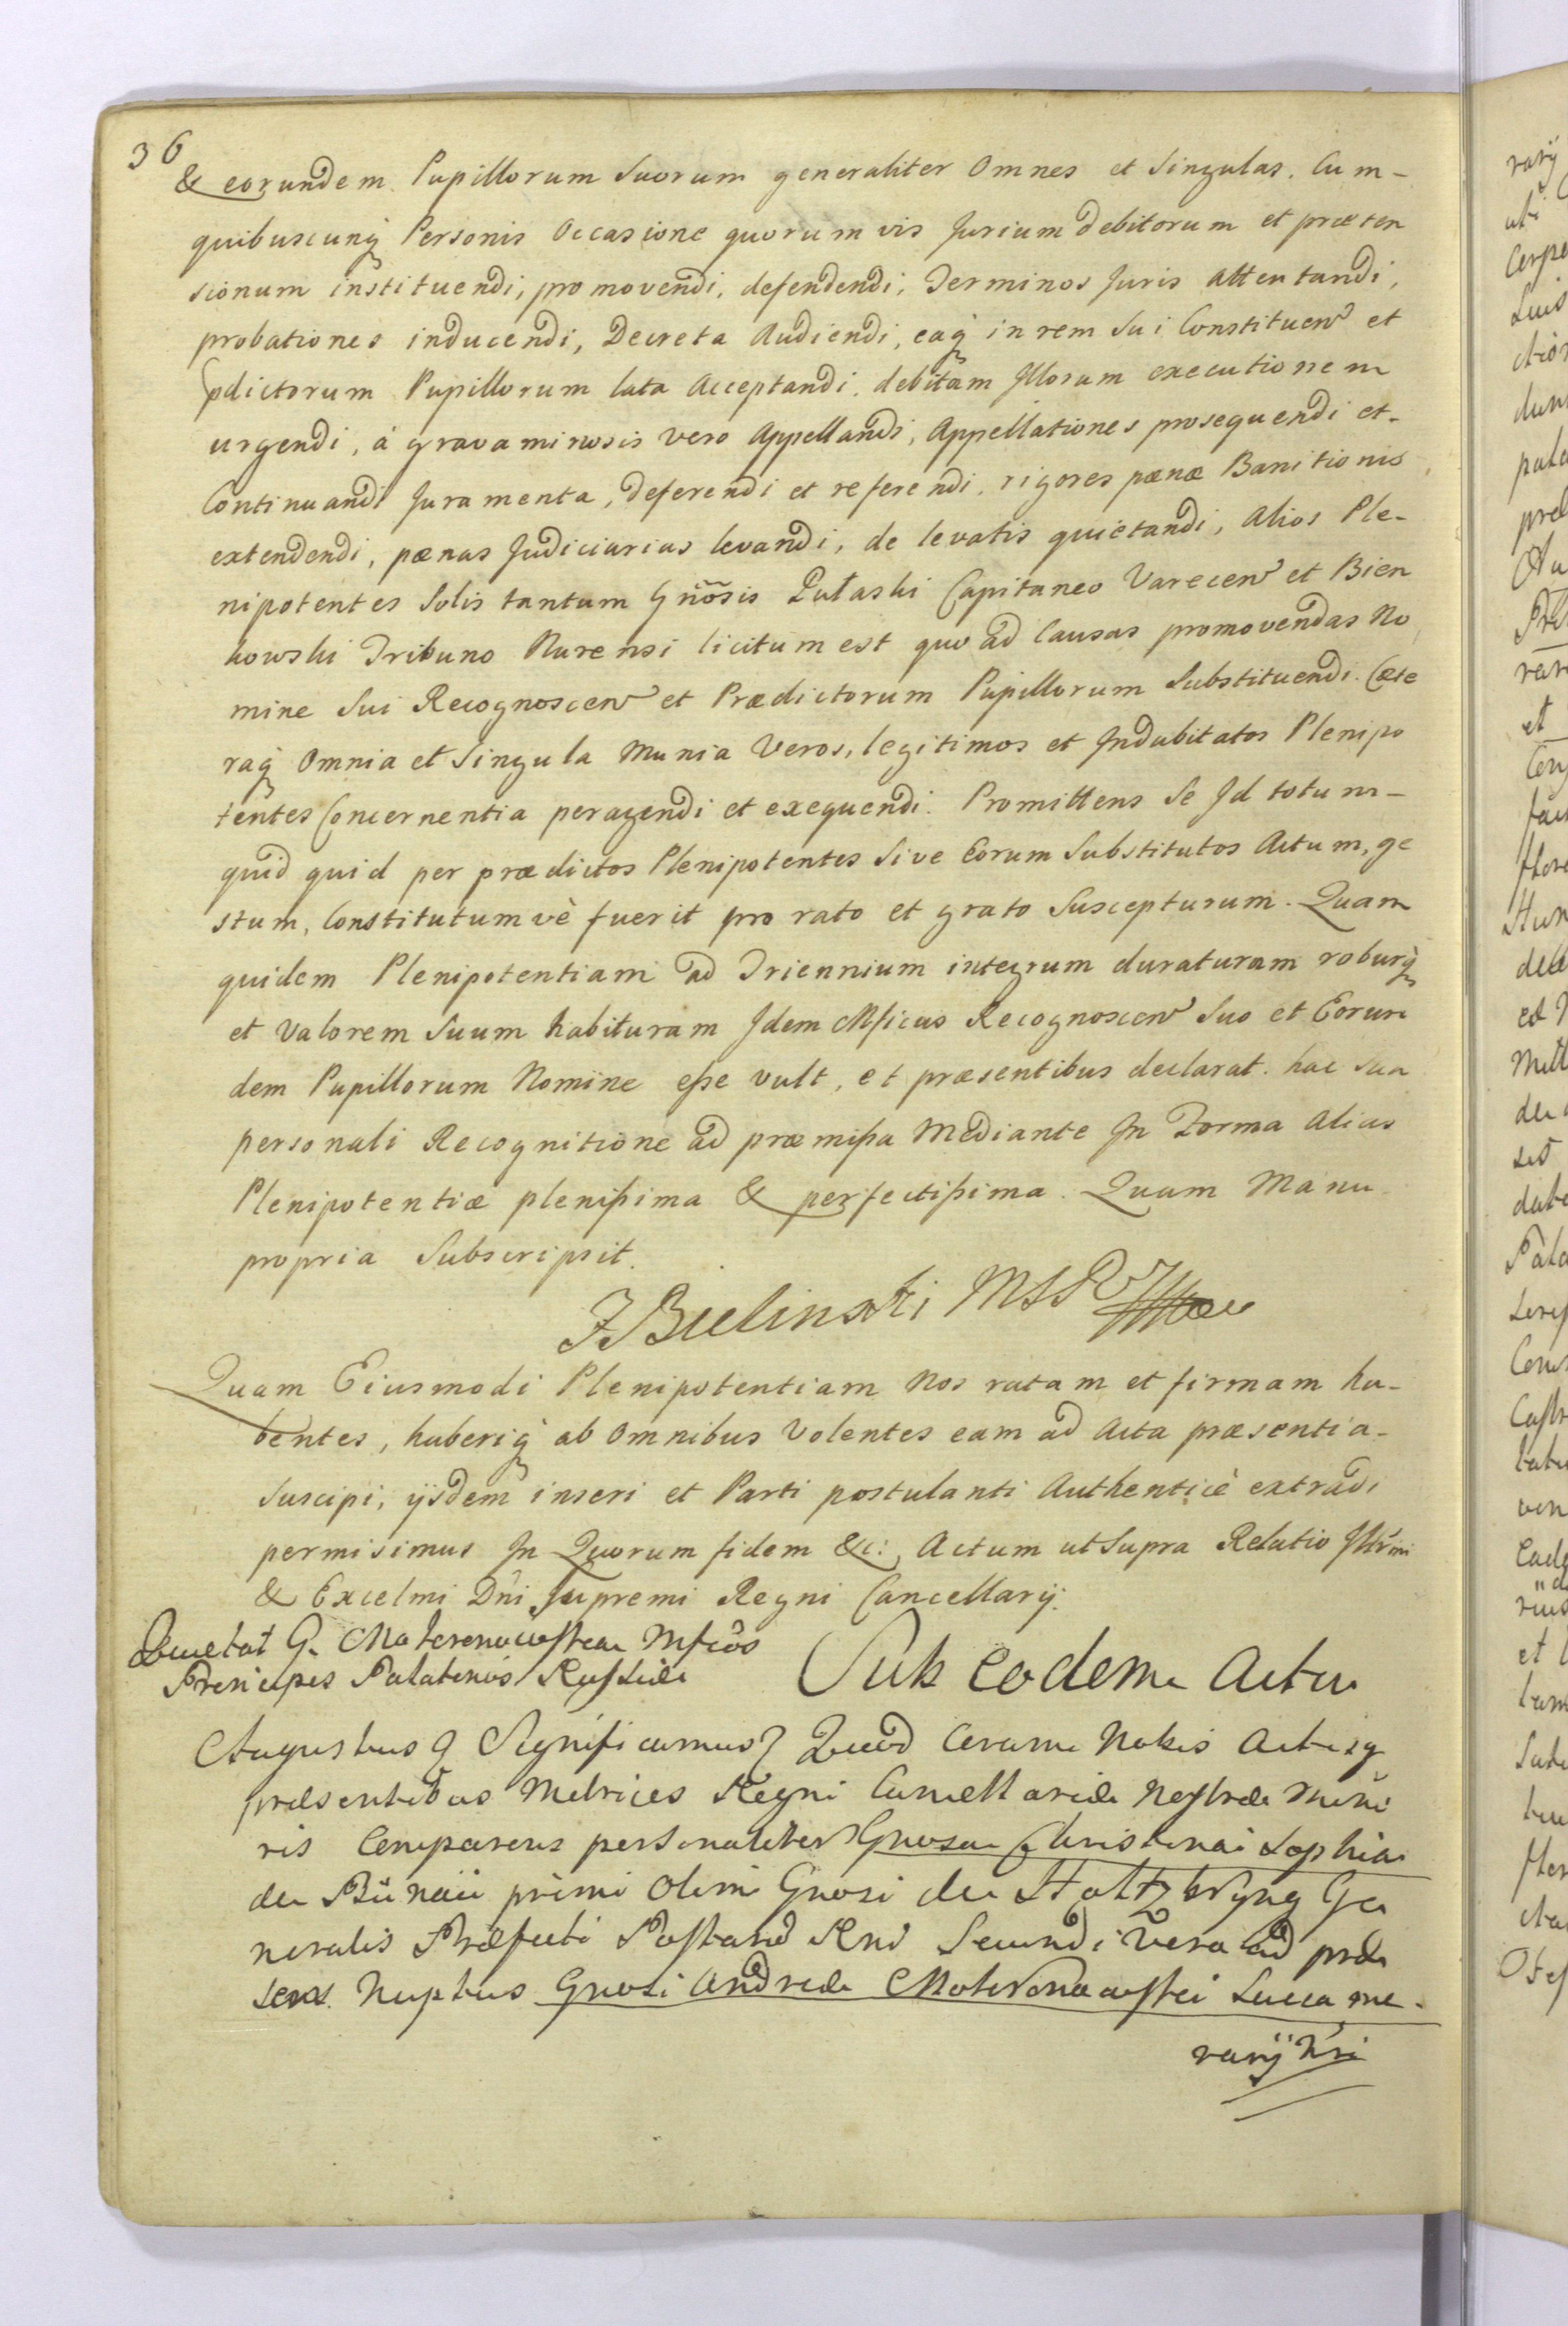 36
& eorundem Pupillorum Suorum generaliter Omnes et Singulas. Cum-
quibuscunq Personis Occasione quorumvis Jurium debitorum et præten
sionum instituendi, promovendi, defendendi, Terminos Juris attentandi,
probationes inducendi, Decreta Audiendi, eaq in rem Sui Constituen et
pdictorum Pupillorum lata Acceptandi. debitam Illorum executionem
urgendi, à gravaminosis vero Appellandi, Appellationes prosequendi et-
Continuandi Juramenta, deferendi et referendi. rigores pænæ Banitionis
extendendi, pænas Judiciarias levandi, de levatis quietandi, Alios Ple-
nipotentes Solis tantum Gnosis Pułaski Capitaneo Varecen et Bien
kowski Tribuno Nurensi licitum est quo ad Causas promovendas No
mine Sui Recognoscen et Prædictorum Pupillorum Substituendi. Cæte
raq Omnia et Singula Munia Veros, legitimos et Indubitatos Plenipo
tentes Concernentia peragendi et exequendi. Promittens Se Id totum-
quid quid per prædictos Plenipotentes Sive Eorum Substitutos Actum, ge
stum, Constitutumvè fuerit pro rato et grato Suscepturum. Quam
quidem Plenipotentiam ad Triennium integrum duraturam roburq
et Valorem Suum habituram Idem Mficus Recognoscen Suo et Eorun
dem Pupillorum Nomine esse vult, et præsentibus declarat. hac Sua
personali Recognitione ad præmissa Mediante In Forma Alias
Plenipotentiæ plenissima & perfectissima. Quam Manu
propria Subscripsit.
F Bielinski MSR
Quam Eiusmodi Plenipotentiam Nos ratam et firmam ha-
bentes, haberiq ab Omnibus Volentes eam ad Acta præsentia-
Suscipi, ijsdem inseri et Parti postulanti Authenticè extradi
permisimus In Quorum fidem &c: Actum ut Supra Relatio Illrmi
& Excelmi Dni Supremi Regni Cancellarij.
Quietat G. Mficos
Principes Palatinos Russiæ
Sub Eodem Actu
Augustus Significamus Quod Coram Nobis Actisq
præsentibus Metrices Regni Cancellariæ Nostræ
ris Comparens personaliter Gnosa Christina Sophia
de Bünau primi Olim Gnosi de
neralis Præfecti Secundi Vero ad præ
sens Nuptus Gnosi Andreæ Succame-
rarij